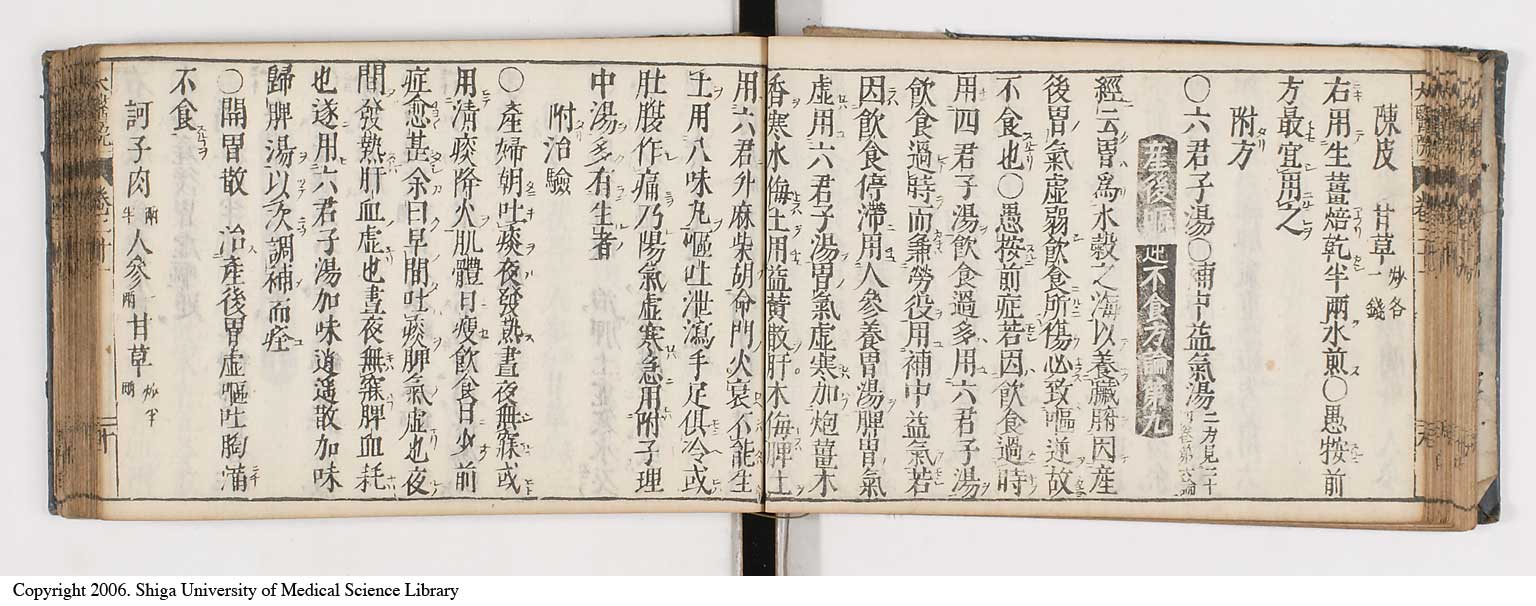 陳皮 甘草 炒各一錢
右用生薑焙乾半兩水煎○愚按前
方最宜用之
附方
○六君子湯○補中益氣湯 二方見二十
產後嘔吐不食方論第九
經云胃為水穀之海以養臟腑因產
後胃氣虛弱飲食所傷必致嘔逆故
不食也○愚按前症若因飲食過時
用四君子湯飲食過多用六君子湯
飲食過時而兼勞役用補中益氣若
因飲食停滯用人參養胃湯脾胃氣
虛用六君子湯胃氣虛寒加炮薑木
香寒水侮土用益黃散肝木侮脾土
用六君升麻柴胡命門火衰不能生
土用八味丸嘔吐泄瀉手足俱冷或
肚腹作痛乃陽氣虛寒急用附子理
中湯多有生者
附治驗
○產婦朝吐痰夜發熱晝夜無寐或
用清痰降火肌體日瘦飲食日少前
症愈甚余曰早間吐痰脾氣虛也夜
間發熱肝血虛也晝夜無寐脾血耗
也遂用六君子湯加味逍遥散加味
歸脾湯以次調補而痊
○開胃散 治產後胃虛嘔吐胸滿
不食
訶子肉 兩半 人參 一兩 甘草 炒半兩
Copyright 2006. Shiga University of Medical Science Library